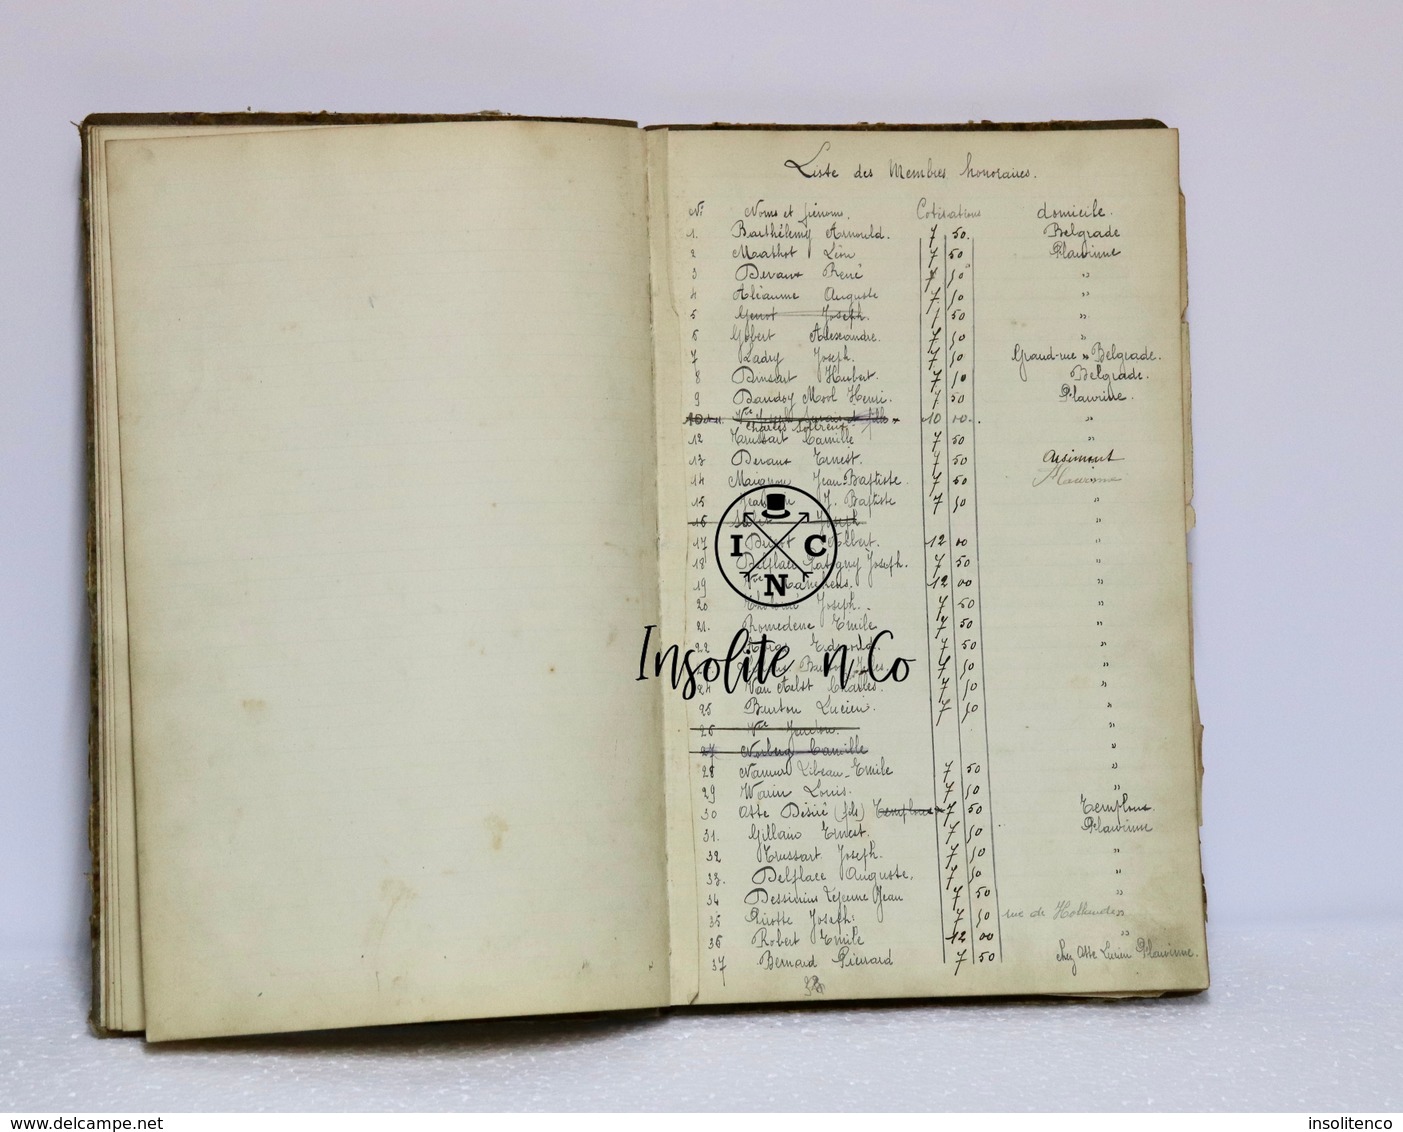 Liste des Membres honoraires.
Nº Noms et prénoms. Cotisations domicile.
1. Barthélemy Arnould. 7 50. Belgrade
2 Mathot Léon 7 50 Flawinne
3 Devaux René 7 50 "
4 Aléaume Auguste 7 50 "
5 Genot Joseph. 7 50 "
6 Gobert Alexandre. 7 50 "
7 Ladry Joseph. 7 50 Grand-rue Belgrade.
8 Dinsart Hubert. 7 50 Belgrade.
9 Henri. 7 50 Flawinne.
10 00. "
Charles
12 Trussart Camille 7 50 "
13 Devaux Ernest. 7 50 Arsimont
14 Jean-Baptiste. 7 50 Flawinne
15 J. Baptiste 7 50 "
16 Joseph "
17 Albert. 12 00 "
18 Delplace Joseph. 7 50 "
19 Vve 12 00 "
20 Joseph. 7 50 "
21. Romedenne Emile 7 50 "
22 7 50 "
7 50 "
24 Van Aelst Charles. 7 50 "
25 Burton Lucien. 7 50 "
26 Vve "
27 Camille "
28 Emile 7 50 "
29 Warin Louis. 7 50 "
30 Atte Désiré (fils) Temploux 7 50 Temploux.
31. Gillain Ernest. 7 50 Flawinne
32 Trussart Joseph. 7 50 "
33. Delplace Auguste. 7 50 "
34 Lejeune Jean 7 50 "
35 Piotte Joseph. 7 50 rue de Hollande "
36 Robert Emile 12 00 "
37 Bernard Pierrard 7 50 chez Atte Lucien Flawinne.
I C
N
Insolite n Co
www.delcampe.net
insolitenco